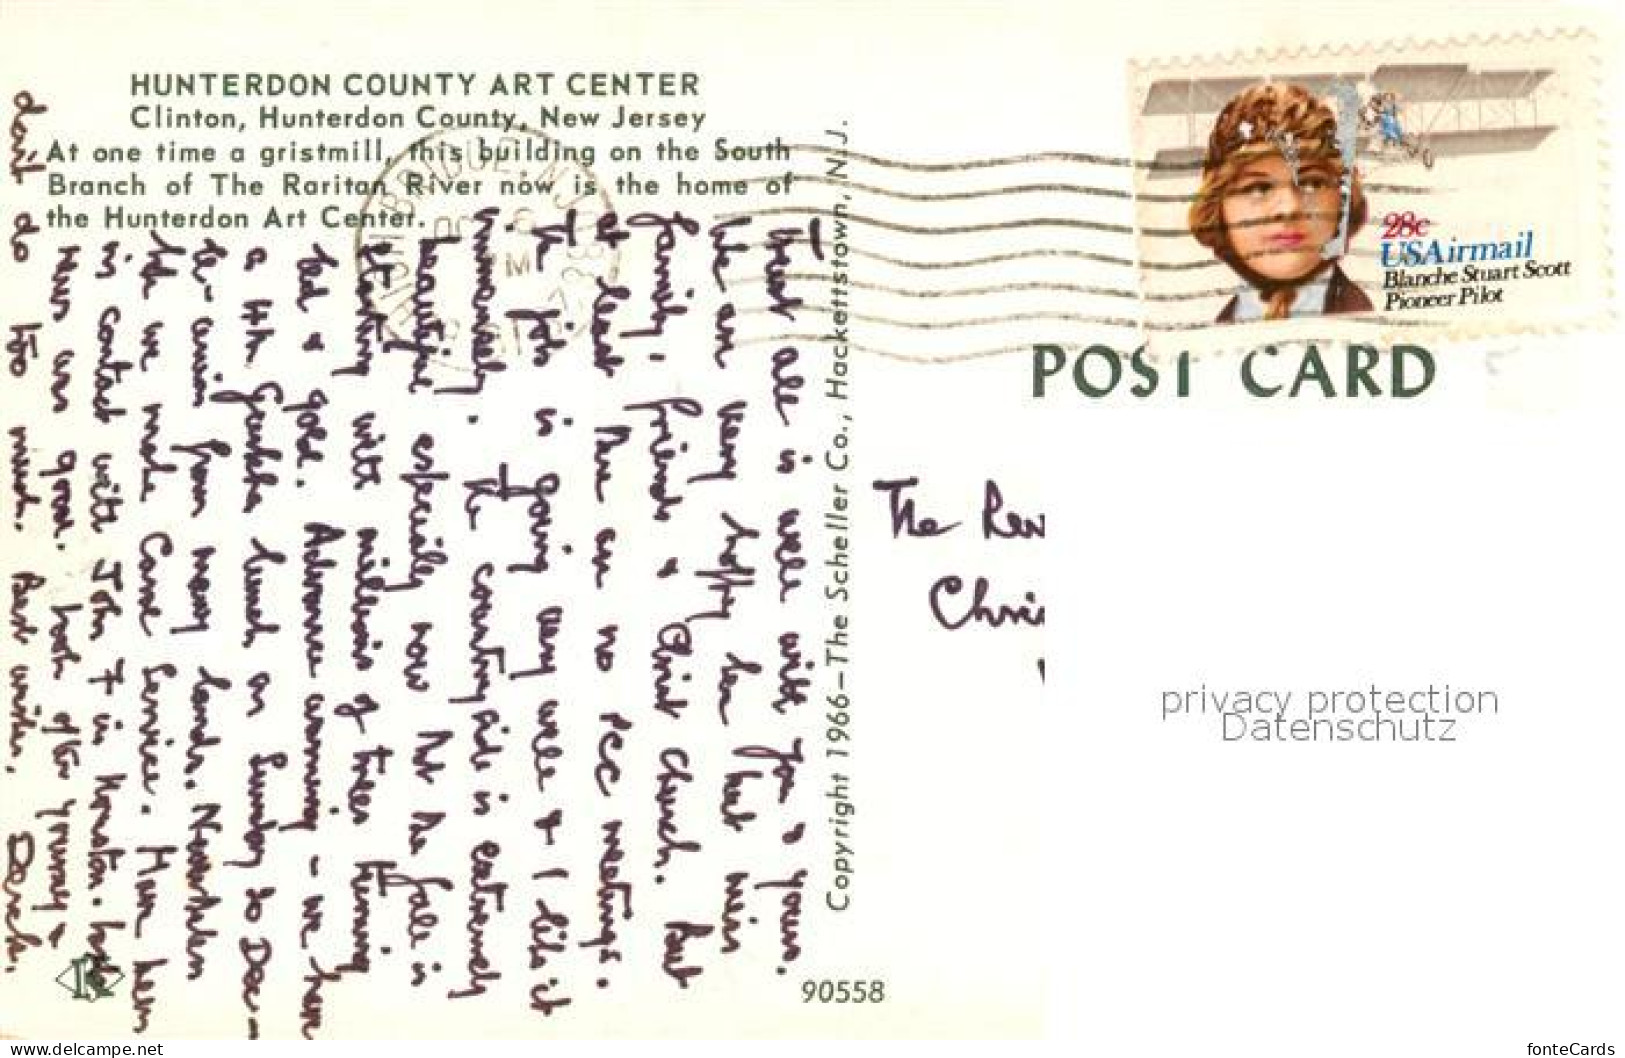 HUNTERDON COUNTY ART CENTER
Clinton, Hunterdon County, New Jersey
At one time a gristmill, this building on the South
Branch of The Raritan River now is the home of
the Hunterdon Art Center.
28c
USAirmail
Blanche Stuart Scott
Pioneer Pilot
POST CARD
Trust all is well with you & yours.
We are very happy here but miss
family, friends & Christ Church. But
at least there are no PCC meetings.
The job is going very well & I like it
immensely. The countryside is extremely
beautiful especially now that the fall is
starting with millions of trees turning
red & gold. Advance warning - we have
a 4th lunch on Sunday 20 Dec -
re-union from many lands.
we made Came Service. Have been
in contact with John F in Kenston.
News was good. Look after yourself &
don't do too much. Best wishes, Derek.
Copyright 1966-The Scheller Co., Hackettstown, N. J.
90558
The Rev
Chri
privacy protection
Datenschutz
www.delcampe.net
fonteCards